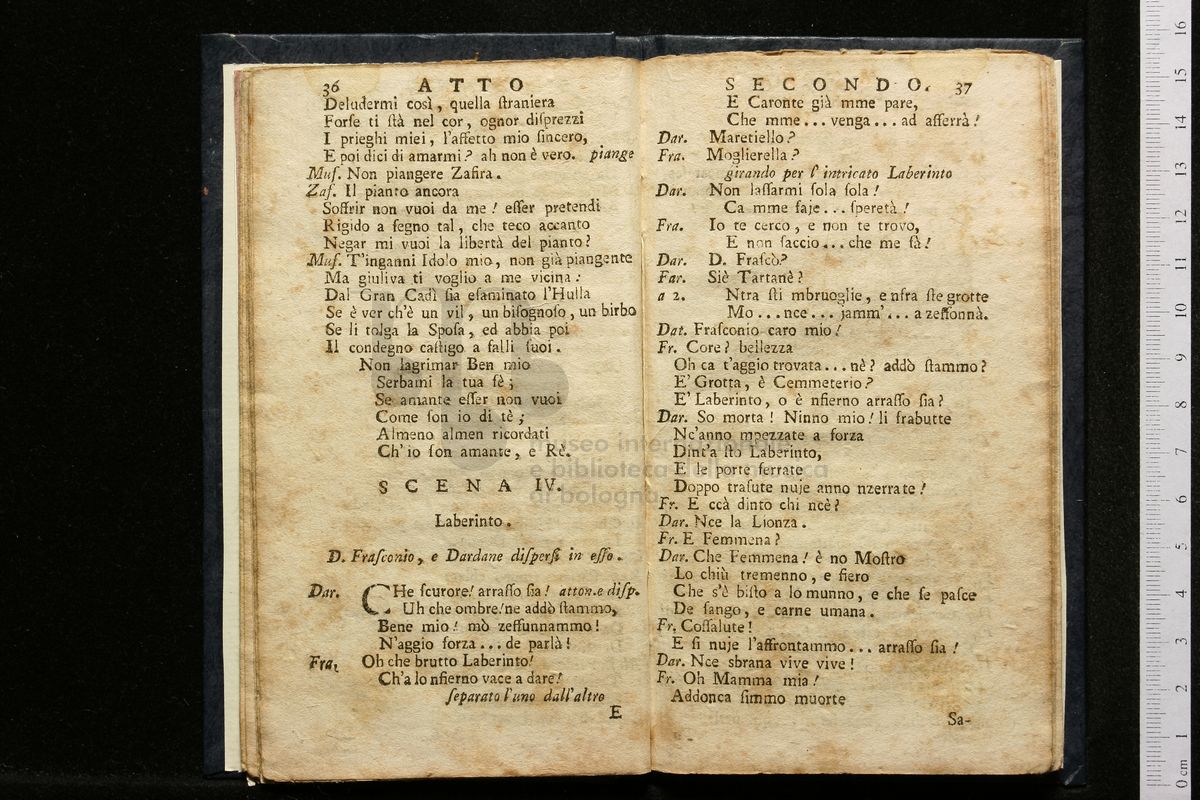 36 ATTO
Deludermi così, quella ſtraniera
Forſe ti ſtà nel cor, ognor diſprezzi
I prieghi miei, l'affetto mio ſincero,
E poi dici di amarmi? ah non è vero. piange
Muſ. Non piangere Zafira.
Zaf. Il pianto ancora
Soffrir non vuoi da me! eſſer pretendi
Rigido a ſegno tal, che teco accanto
Negar mi vuoi la libertà del pianto?
Muſ. T'inganni Idolo mio, non già piangente
Ma giuliva ti voglio a me vicina:
Dal Gran Cadì ſia eſaminato l'Hulla
Se è ver ch'è un vil, un biſognoſo, un birbo
Se li tolga la Spoſa, ed abbia poi
Il condegno caſtigo a falli ſuoi.
Non lagrimar Ben mio
Serbami la tua fè;
Se amante eſſer non vuoi
Come ſon io di tè;
Almeno almen ricordati
Ch'io ſon amante, e Rè.
SCENA IV.
Laberinto.
D. Fraſconio, e Dardane diſperſi in eſſo.
Dar. CHe ſcurore! arraſſo ſia! atton.e diſp.
Uh che ombre! ne addò ſtammo,
Bene mio! mò zeffunnammo!
N'aggio forza... de parlà!
Fra. Oh che brutto Laberinto!
Ch'a lo nfierno vace a dare!
ſeparato l'uno dall'altro
E
SECONDO. 37
E Caronte già mme pare,
Che mme... venga... ad afferrà!
Dar. Maretiello?
Fra. Moglierella?
girando per l'intricato Laberinto
Dar. Non laſſarmi ſola ſola!
Ca mme faje... ſperetà!
Fra. Io te cerco, e non te trovo,
E non ſaccio... che me fà!
Dar. D. Fraſcò?
Far. Siè Tartanè?
a 2. Ntra ſti mbruoglie, e nfra ſte grotte
Mo... nce... jamm'... a zeffonnà.
Dat. Fraſconio caro mio!
Fr. Core? bellezza
Oh ca t'aggio trovata... nè? addò ſtammo?
E' Grotta, è Cemmeterio?
E' Laberinto, o è nfierno arraſſo ſia?
Dar. So morta! Ninno mio! li frabutte
Nc'anno mpezzate a forza
Dint'a ſto Laberinto,
E le porte ferrate
Doppo traſute nuje anno nzerrate!
Fr. E ccà dinto chi ncè?
Dar. Nce la Lionza.
Fr. E Femmena?
Dar. Che Femmena! è no Moſtro
Lo chiù tremenno, e fiero
Che s'è biſto a lo munno, e che ſe paſce
De ſango, e carne umana.
Fr. Coſſalute!
E ſi nuje l'affrontammo... arraſſo ſia!
Dar. Nce sbrana vive vive!
Fr. Oh Mamma mia!
Addonca ſimmo muorte
Sa-